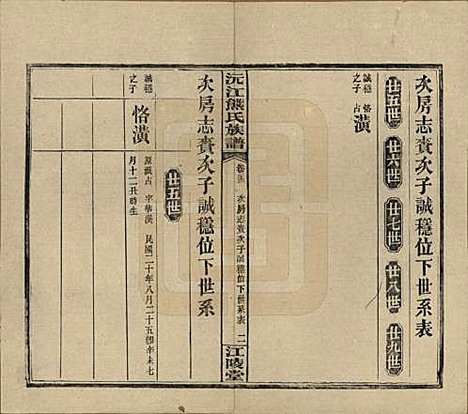 次房志賚次子誠穩位下世系表
廿五世
廿六世
廿七世
廿八世
廿九世
誠穩
之子
恪
占
潢
沅江熊氏族譜
卷
次房志賚次子誠穩位下世系表
二
江陵堂
次房志賚次子誠穩位下世系
廿五世
誠穩
之子
恪潢
原派占 字華漢 民國二十年八月二十五
月十二丑時生